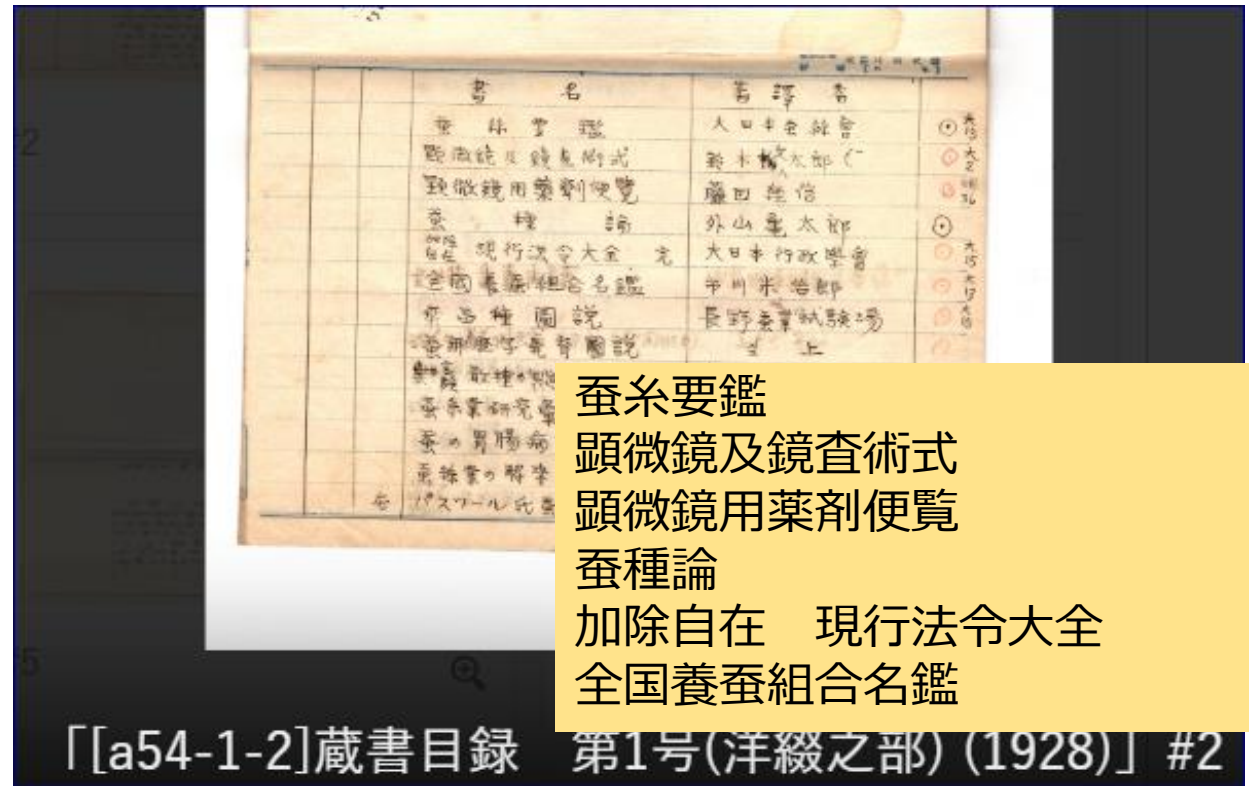 書名 著譯者
蚕糸要鑑 大日本蚕絲會
顕微鏡及鏡査術式 鈴木 太郎
顕微鏡用薬剤便覧 藤田経信
蚕種論 外山亀太郎
加除自在 現行法令大全 完 大日本行政學會 大15
全國養蚕組合名鑑 市川米治郎
桑品種圖説 長野蚕業試験場
圖説 仝上
蚕糸業研究
蚕の胃腸病
蚕絲業の解
パスツール氏蚕
蚕糸要鑑
顕微鏡及鏡査術式
顕微鏡用薬剤便覧
蚕種論
加除自在　現行法令大全
全国養蚕組合名鑑
「[a54-1-2]蔵書目録　第1号(洋綴之部) (1928)」 #2